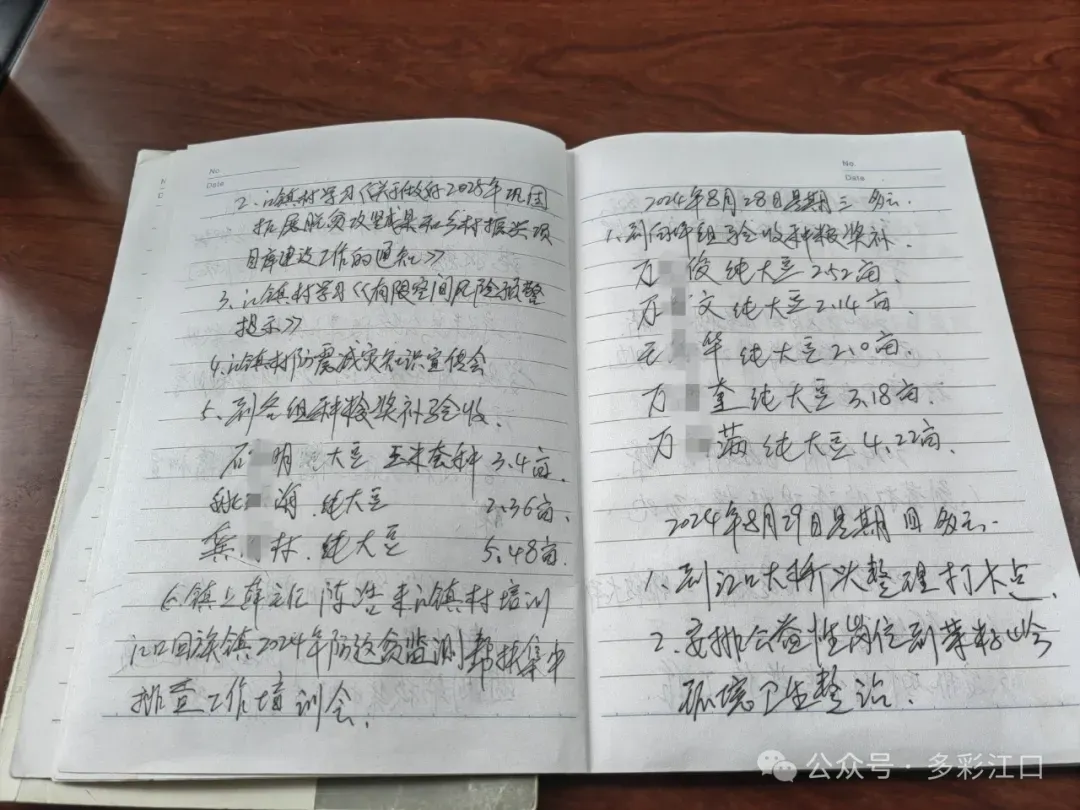 No.
Date
2.江镇村学习《关于做好2025年巩固
拓展脱贫攻坚成果和乡村振兴项
目库建设工作的通知》
3.江镇村学习《有限空间风险预警
提示》
4.江镇村防震减灾知识宣传会
5.到各组种粮奖补验收.
石 明 大豆 玉米套种 3.4亩.
姚 海.纯大豆 2.36亩.
龚. 林.纯大豆 5.48亩.
6.镇上薛主任 陈浩来江镇村培训
江口回族镇2024年防返贫监测帮扶集中
排查工作培训会.
No.
Date
2024年8月28日星期三 多云.
1.到向坪组验收种粮奖补.
万 俊纯大豆2.52亩
万 文纯大豆2.14亩.
王 华纯大豆2.0亩.
万 奎纯大豆3.18亩.
万 满纯大豆4.22亩.
2024年8月29日星期四 多云.
1.到江口大桥头整理打卡点.
2.安排公益性岗位到菜籽岭
环境卫生整治.
公众号·多彩江口